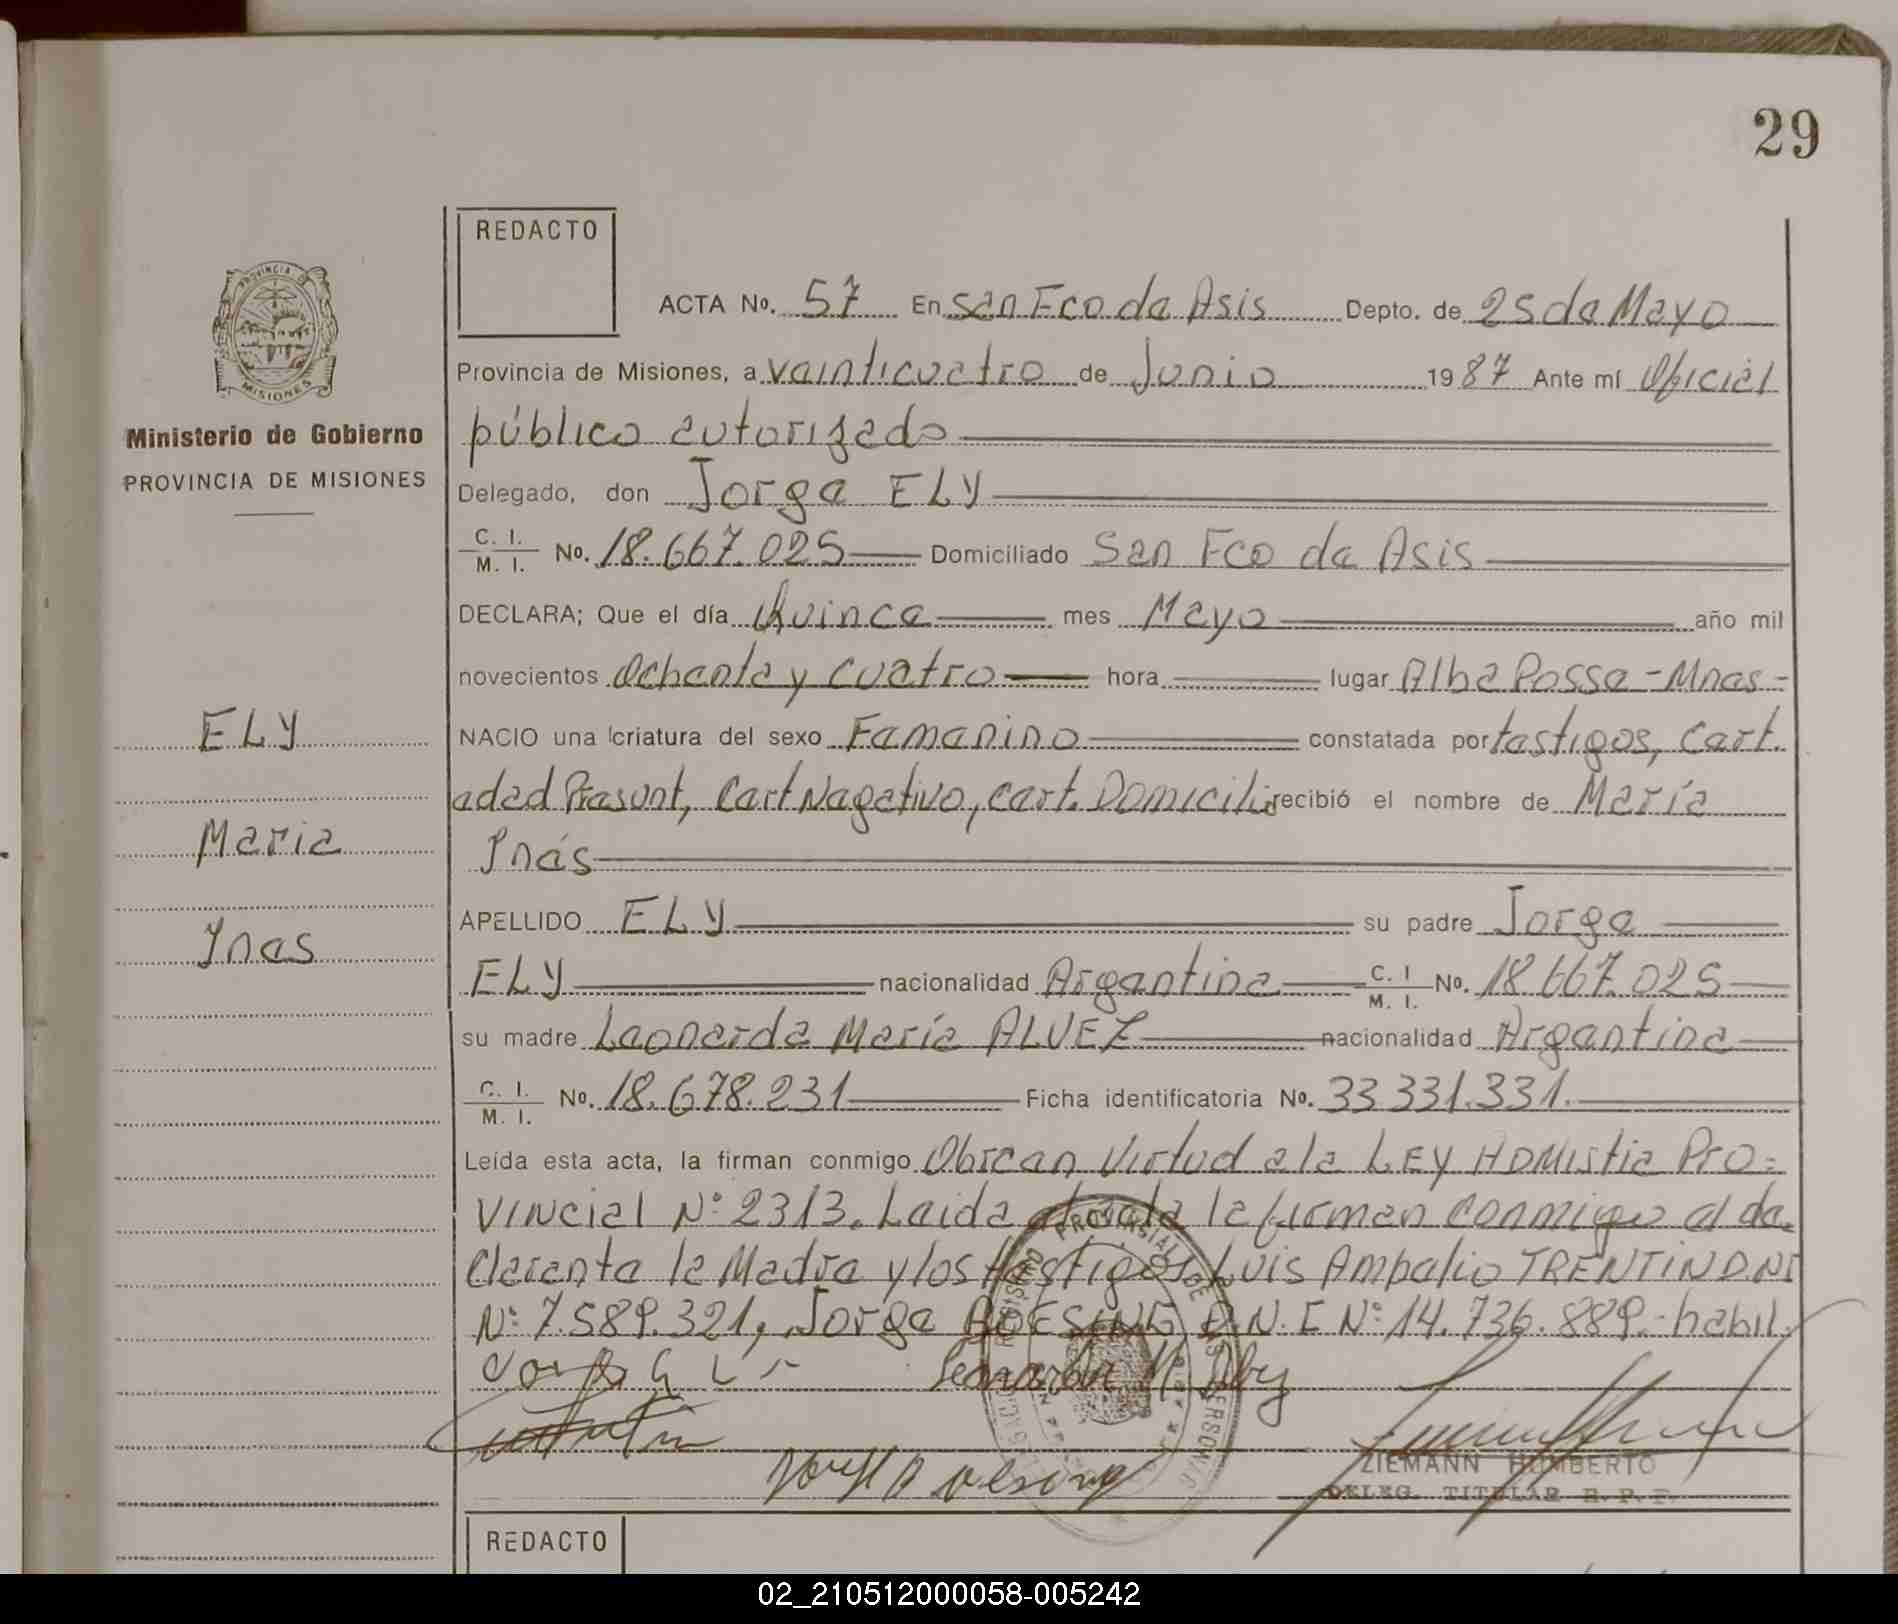 29
REDACTO
ACTA No. 57 En San Fco de Asis Depto. de 25 de Mayo
Provincia de Misiones, a veinticuatro de Junio 1987 Ante mí Oficial
público autorizado
Ministerio de Gobierno
PROVINCIA DE MISIONES
Delegado, don Jorge ELY
C. I. M. I. No. 18.667.025 Domiciliado San Fco de Asis
DECLARA; Que el día Quince mes Mayo año mil
novecientos Ochenta y cuatro hora lugar Alba Posse - Mnes -
NACIO una criatura del sexo Femenino constatada por testigos, Cert.
edad Presunt, Cert Negativo, cert. Domicilio recibió el nombre de María
Inés
ELY
Maria
Ines
APELLIDO ELY su padre Jorge
ELY nacionalidad Argentina C. I M. I. No. 18.667.025
su madre Leonarda María ALVEZ nacionalidad Argentina
C. I. M. I. No. 18.678.231 Ficha identificatoria No. 33 331.331.
Leída esta acta, la firman conmigo Obra en Virtud a la LEY ADMistia Pro=
Vincial N° 2313. Leida el acta la firman conmigo el de
clarante la Madre y los testigos Luis Ampelio TRENTIN D.NI
N° 7.589.321, Jorge BOESING D.N.I N° 14.736.889.- habil.
ZIEMANN HUMBERTO
DELEG. TITULAR R. P. P.
REDACTO
02_210512000058-005242